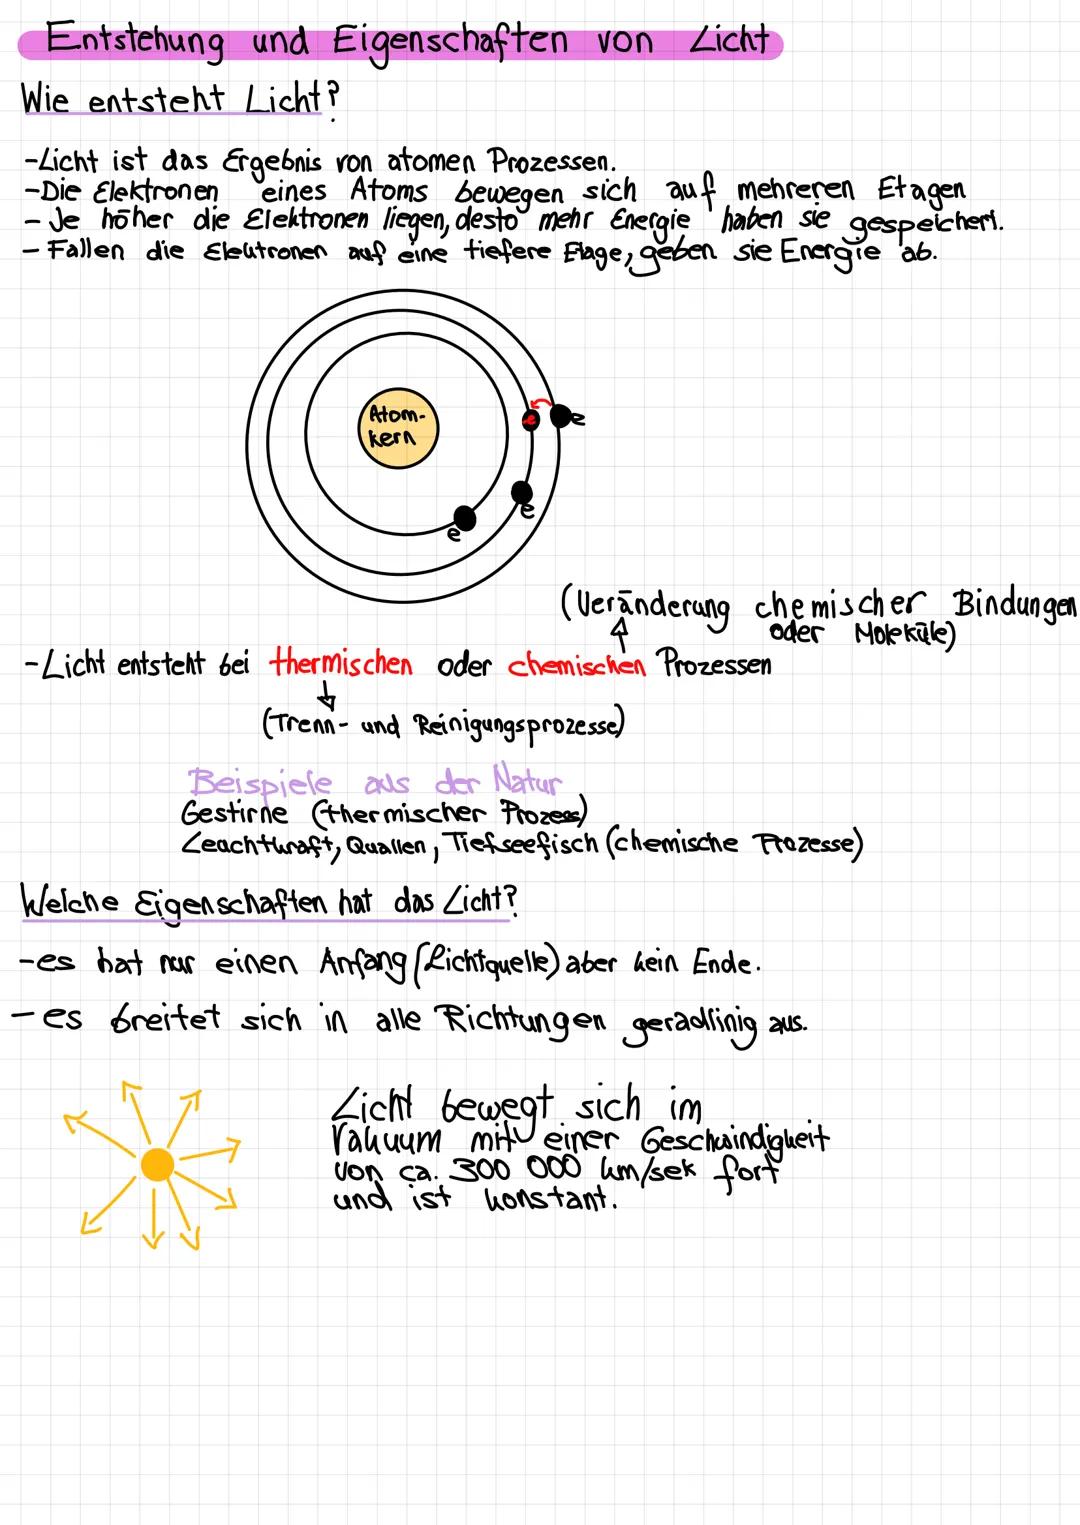 Entstehung und Eigenschaften von Licht
Wie entsteht Licht?
-Licht ist das Ergebnis von atomen Prozessen.
-Die Elektronen eines Atoms bewegen sich auf mehreren Etagen
- Je höher die Elektronen liegen, desto mehr Energie haben sie gespeichert.
- Fallen die Elektronen auf eine tiefere Etage, geben sie Energie ab.
Atom-
kern
e
e
e
e
(Veränderung chemischer Bindungen
oder Moleküle)
-Licht entsteht bei thermischen oder chemischen Prozessen
(Trenn- und Reinigungsprozesse)
Beispiele aus der Natur
Gestirne (thermischer Prozess)
Leuchtkraft, Quallen, Tiefseefisch (chemische Prozesse)
Welche Eigenschaften hat das Licht?
-es hat nur einen Anfang (Lichtquelle) aber kein Ende.
- es breitet sich in alle Richtungen geradlinig aus.
Licht bewegt sich im
Vakuum mit einer Geschwindigkeit
von ca. 300 000 km/sek fort
und ist konstant.